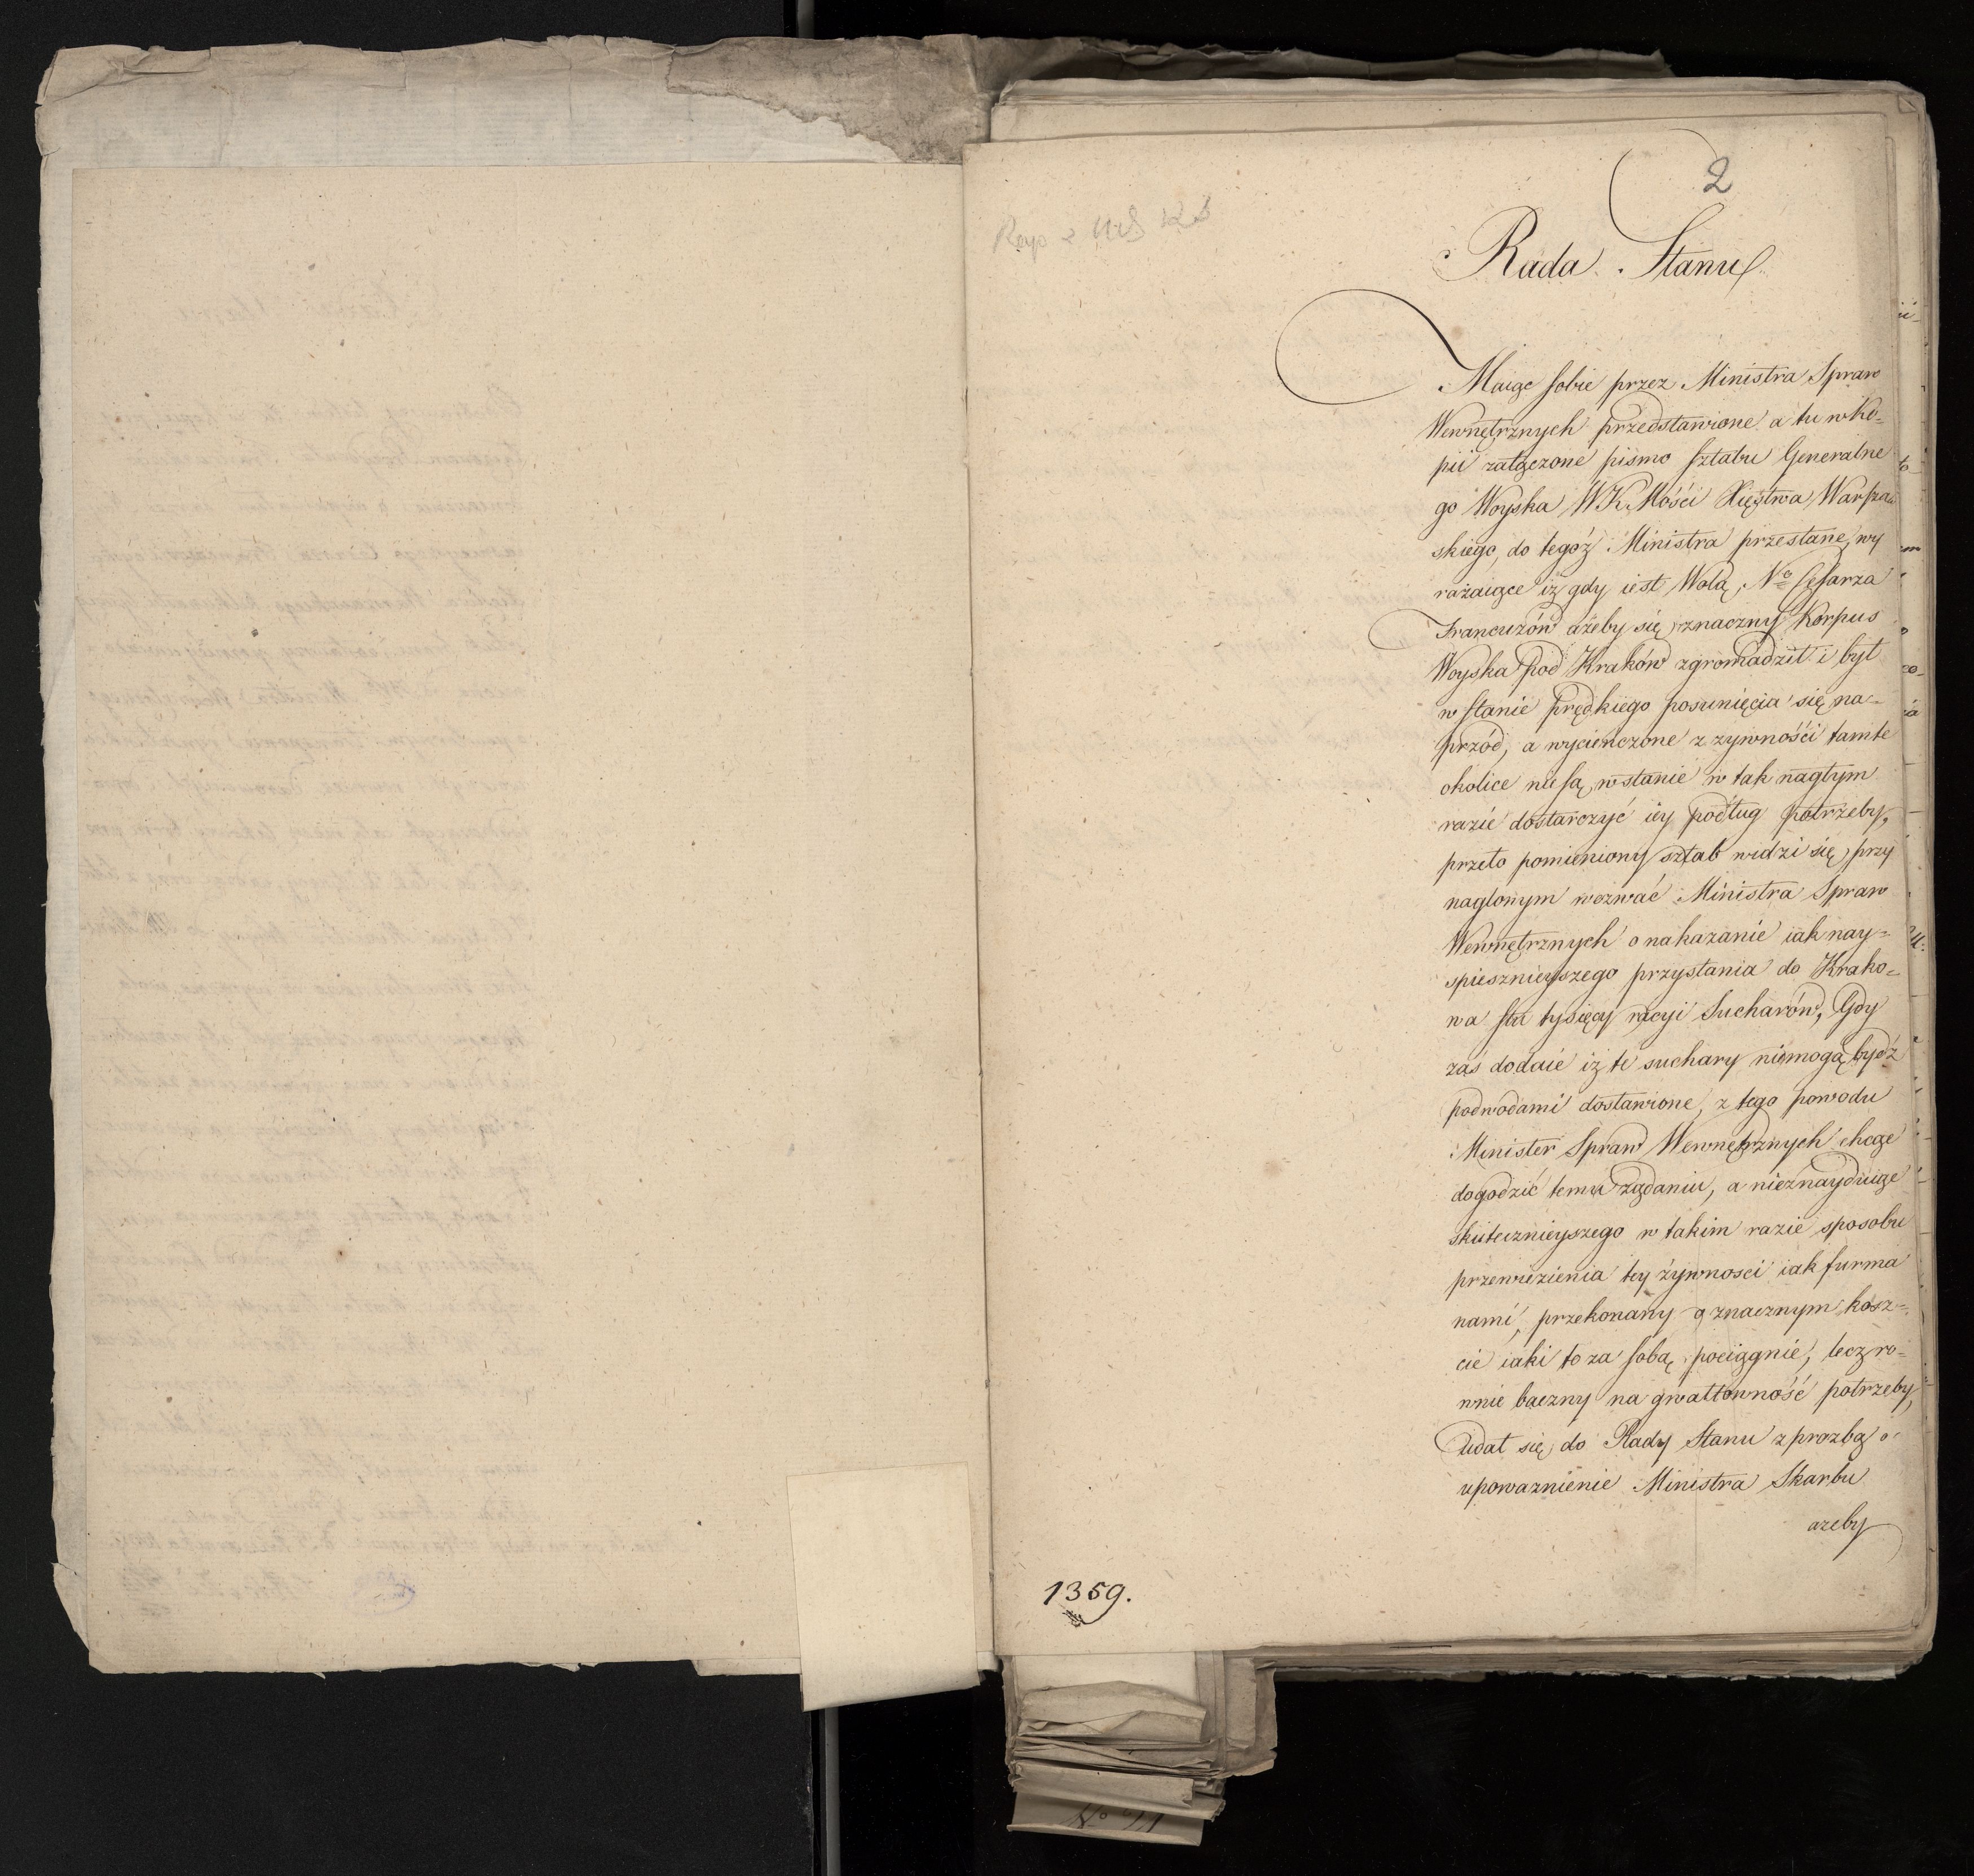 2
Rada Stanu
Maiąc sobie przez Ministra Spraw
Wewnętrznych przedstawione a tu w Ko-
pii załączone pismo sztabu Generalne
go Woyska WKMości Xięstwa Warszaw
skiego, do tegóż Ministra przesłane, wy
rażaiące iż gdy iest Wolą, No Cesarza
Francuzów ażeby się znaczny Korpus
Woyska pod Kraków zgromadził i był
w stanie prędkiego posunięcia się na-
przód, a wycieńczone z zywności tamte
okolice nie są, w stanie w tak nagłym
razie dostarczyć iey podług potrzeby,
przeto pomieniony sztab widzi się przy
naglonym wezwać Ministra Spraw
Wewnętrznych o nakazanie iak nay=
spiesznieyszego przysłania do Krako=
wa stu tysięcy racyi Sucharów, Gdy
zaś dodaie iż te suchary niemogą bydź
podwodami dostawione, z tego powodu
Minister Spraw Wewnętrznych chcąc
dogodzić temu żądaniu, a nieznayduiąc
skutecznieyszego w takim razie sposobu
przewiezienia tey żywnosci iak furma
nami, przekonany o znacznym kosz=
cie iaki to za sobą pociągnie, lecz ro=
wnie baczny na gwałtowność potrzeby,
Udał się do Rady Stanu z prozbą o
upoważnienie Ministra Skarbu
azeby
1359.